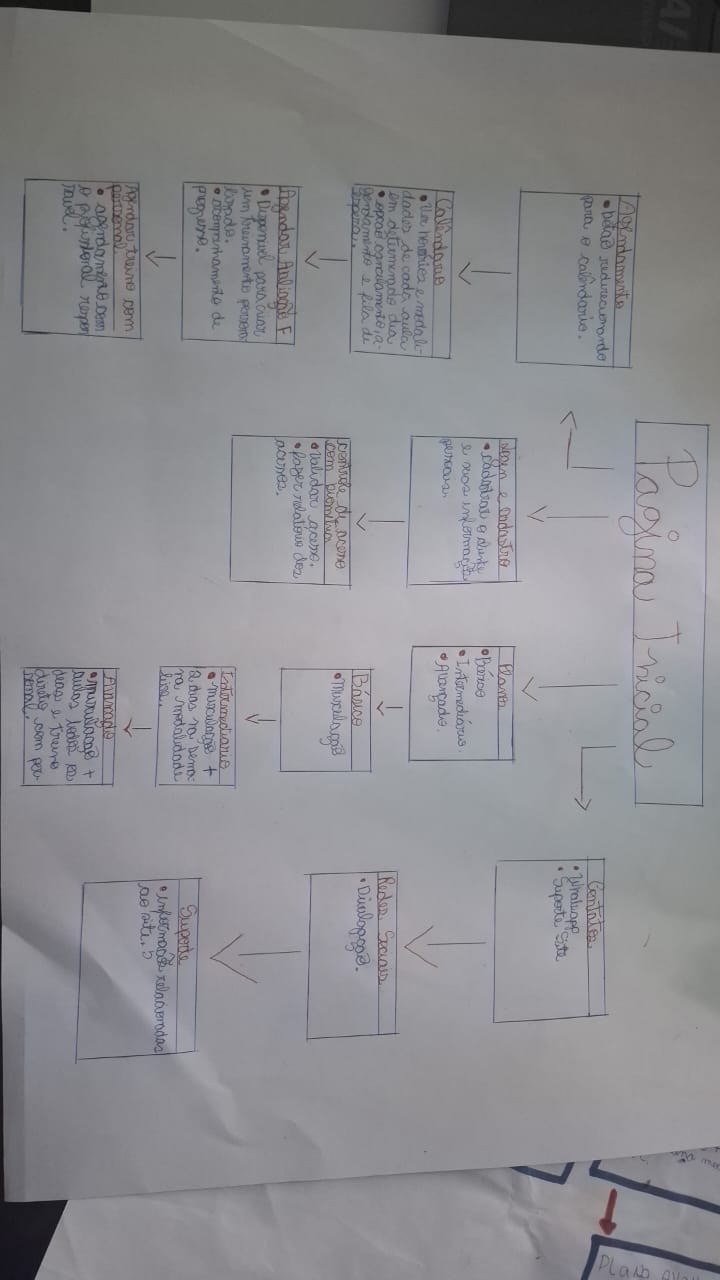 Pagina Inicial
Agendamento
• botão redirecionando
para o calêndario.
Calêndario
• Ver horários e modali-
dades de cada aula
em determinado dia
• opção cancelamento, a-
gendamento e fila de
espera.
Agendar Avaliação F
• Disponivel para criar
um treinamento person
lizado.
• acompanhamento de
progresso.
Agendar treino com
personal.
• agendamento com
o profissional respon
savel.
Login e cadastro
• Cadastrar o cliente
e suas informações
pessoais.
controle de acesso
com biometria
• Validar acesso.
• fazer relatório dos
acessos.
Planos
• Básico
• Intermediário.
• Avançado.
Básico
• Musculação
Intermediario
• musculação +
2x dias na sema-
na modalidade
livre.
Avançado
• musculação +
aulas todos os
dias e treino
direto com per
sonal.
Contatos
• Whatsapp
• Suporte Site
Redes Sociais
• Divulgação.
Suporte
• informações relacionadas
ao site.
PLANO AVA